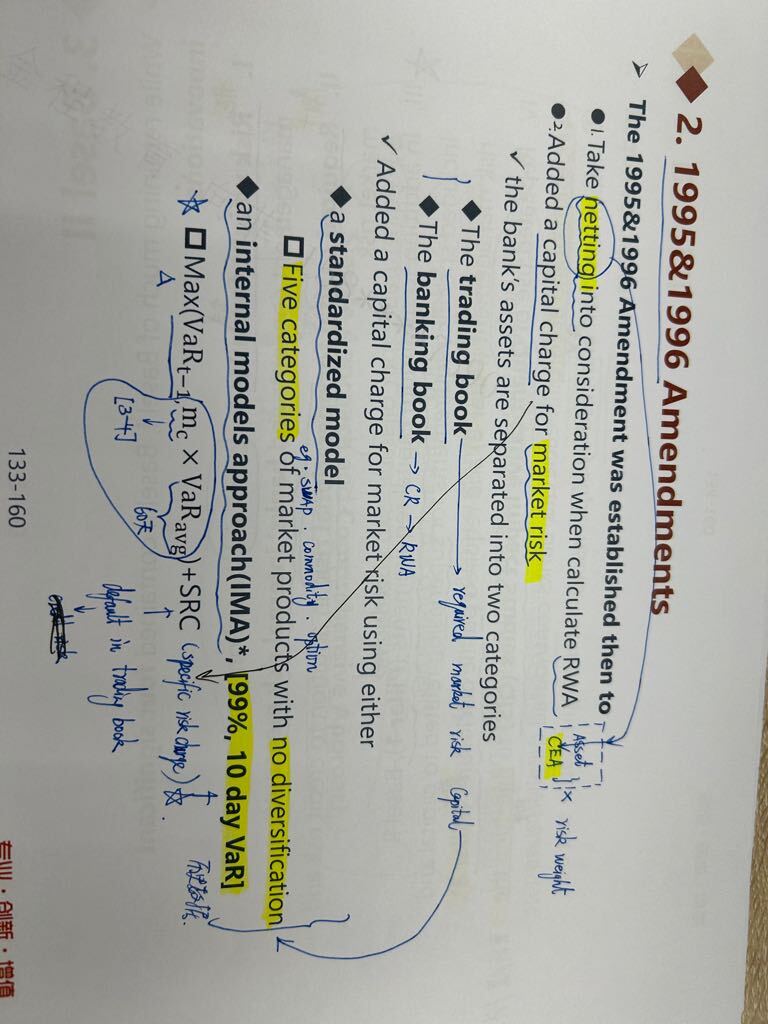 2. 1995&1996 Amendments
➢ The 1995&1996 Amendment was established then to
● 1. Take netting into consideration when calculate RWA
Asset
CEA
× risk weight
● 2. Added a capital charge for market risk
✓ the bank's assets are separated into two categories
◆ The trading book → required market risk capital
◆ The banking book → CR → RWA
✓ Added a capital charge for market risk using either
◆ a standardized model
eg. swap. commodity. option
□ Five categories of market products with no diversification
◆ an internal models approach(IMA)*, [99%, 10 day VaR]
☆ □ Max(VaRt−1, mc × VaRavg) + SRC (specific risk charge) ☆.
[3-4]
60天
default in trading book
133-160
专业·创新·增值